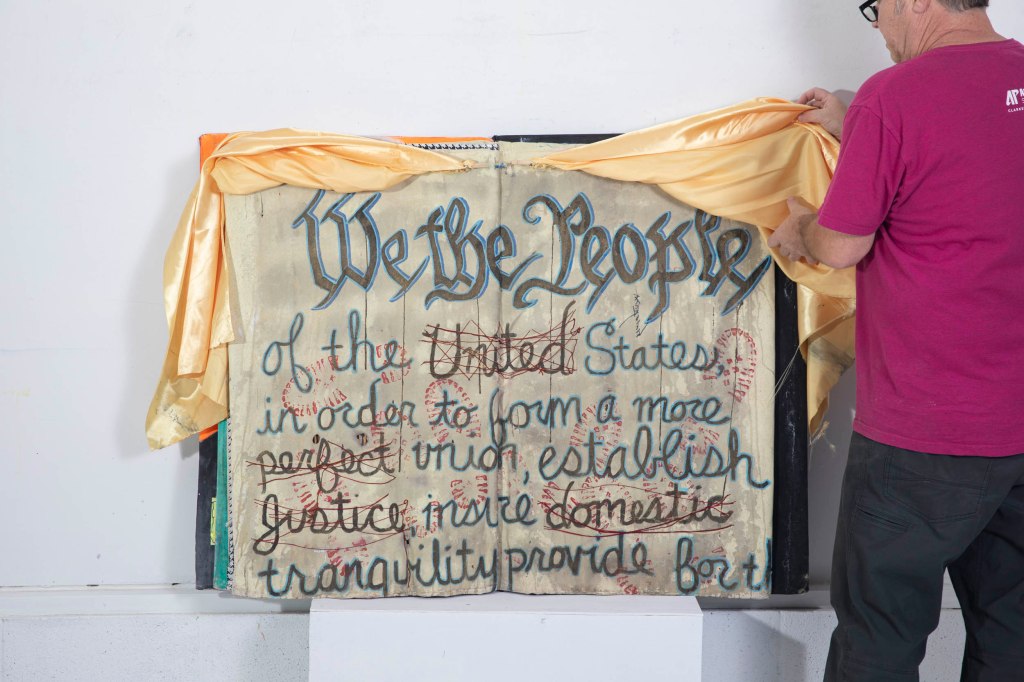 We the People
of the United States,
in order to form a more
"perfect" union, establish
Justice, insure domestic
tranquility provide for th
AP